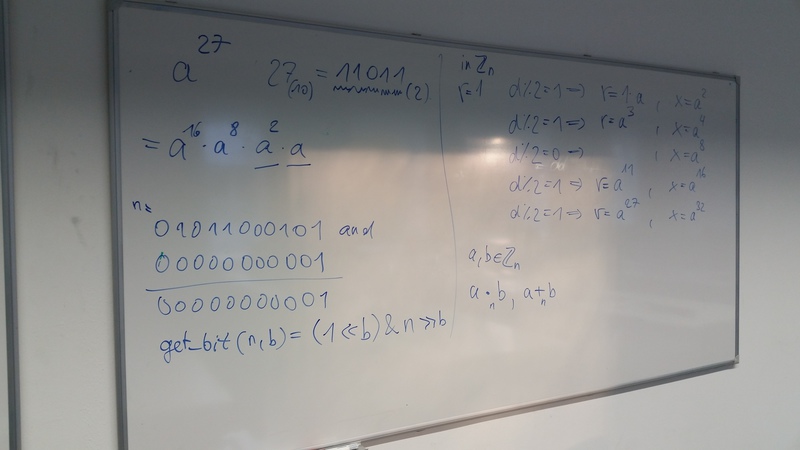 a^27 27_(10) = 11011_(2)
= a^16 · a^8 · a^2 · a
n=
01011000101 and
00000000001
00000000001
get_bit(n,b) = (1<<b) & n >> b
in ℤ_n
r=1 d%2=1 => r=1·a, x=a^2
d%2=1 => r=a^3, x=a^4
d%2=0 => , x=a^8
d%2=1 => r=a^11, x=a^16
d%2=1 => r=a^27, x=a^32
a,b∈ℤ_n
a ·_n b, a +_n b